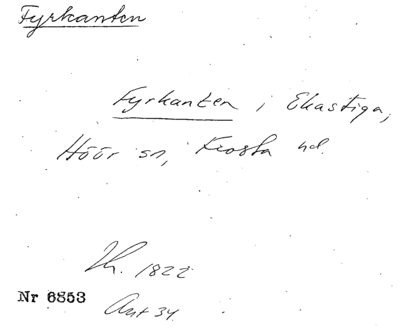 Fyrkanten
Fyrkanten i Ekastiga,
Höör sn, Frosta hd.
1822
Nr 6853
Ant 34.